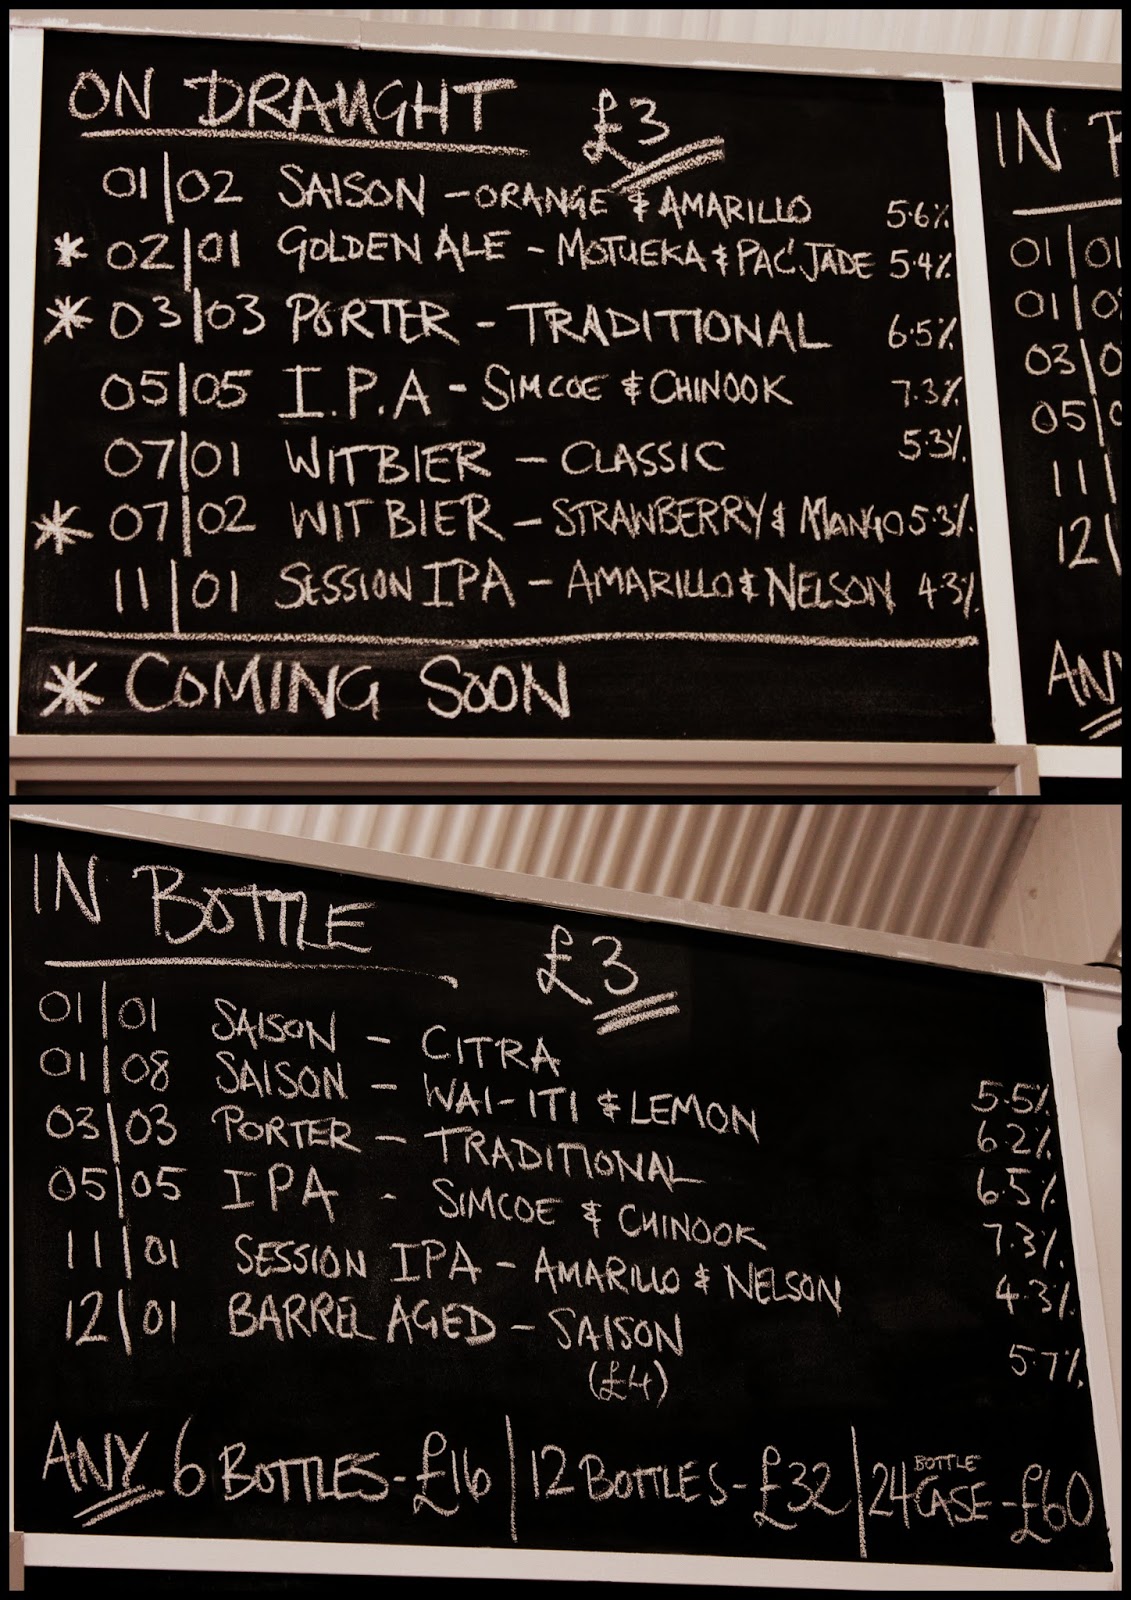 ON DRAUGHT £3
01|02 SAISON - ORANGE & AMARILLO 5.6%
* 02|01 GOLDEN ALE - MOTUEKA & PAC' JADE 5.4%
* 03|03 PORTER - TRADITIONAL 6.5%
05|05 I.P.A - SIMCOE & CHINOOK 7.3%
07|01 WITBIER - CLASSIC 5.3%
* 07|02 WITBIER - STRAWBERRY & MANGO 5.3%
11|01 SESSION IPA - AMARILLO & NELSON 4.3%
* COMING SOON
IN
01|01
01|0
03|0
05|0
11|
12|
ANY
IN BOTTLE £3
01|01 SAISON - CITRA 5.5%
01|08 SAISON - WAI-ITI & LEMON 6.2%
03|03 PORTER - TRADITIONAL 6.5%
05|05 IPA - SIMCOE & CHINOOK 7.3%
11|01 SESSION IPA - AMARILLO & NELSON 4.3%
12|01 BARREL AGED - SAISON 5.7%
(£4)
ANY 6 BOTTLES - £16 | 12 BOTTLES - £32 | 24 BOTTLE CASE - £60